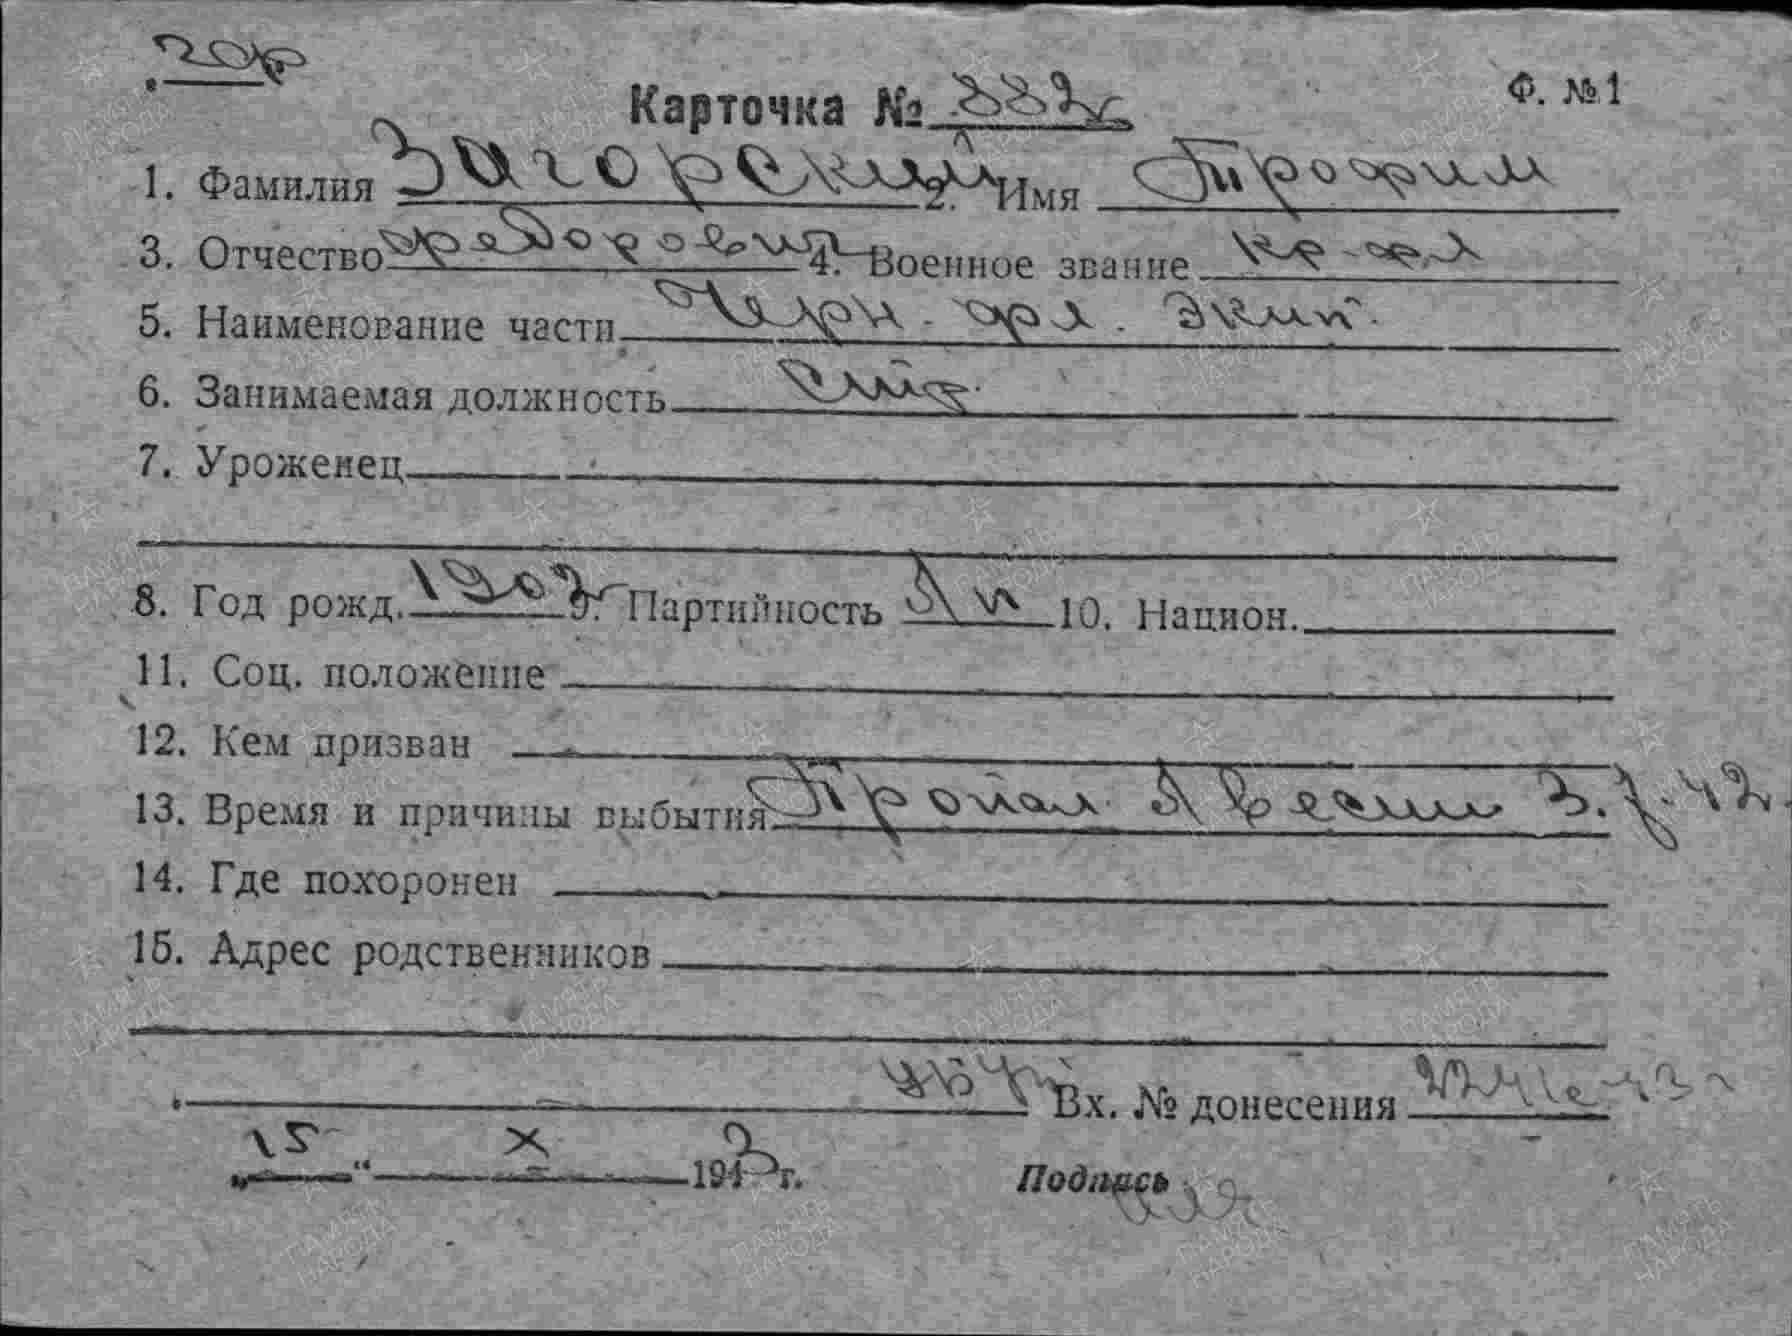 Карточка № Ф. №1
1. Фамилия Загорский 2. Имя Трофим
3. Отчество Федорович 4. Военное звание кр-фл
5. Наименование части Черн. фл. Экип.
6. Занимаемая должность
7. Уроженец
8. Год рожд. 1907 9. Партийность 10. Национ.
11. Соц. положение
12. Кем призван
13. Время и причины выбытия Пропал без вести 3.7.42
14. Где похоронен
15. Адрес родственников
Вх. № донесения
„15“ X 1943 г. Подпись
ПАМЯТЬ НАРОДА